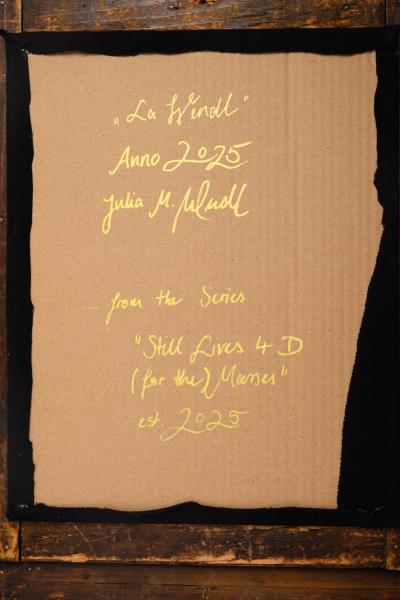 „La Windl"
Anno 2025
Julia M. Windl
.. from the Series
"Still Lives 4 D
(for the) Masses"
est. 2025